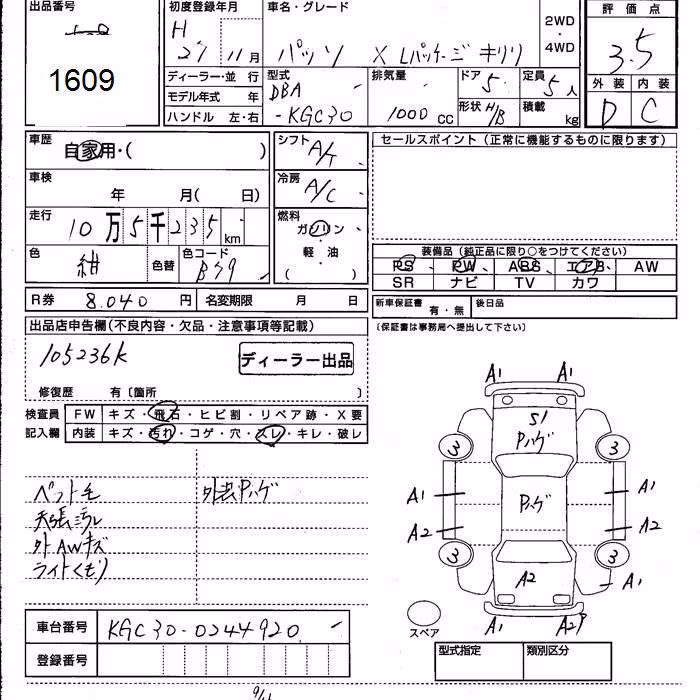 出品番号
1609
初度登録年月
H
21 11月
車名・グレード
パッソ X Lパッケージ キリリ
2WD
・
4WD
評価点
3.5
外装 内装
D C
ディーラー・並行
モデル年式 年
ハンドル 左・右
型式
DBA
-KGC30
排気量
1000 CC
ドア 5
定員 5人
形状 H/B
積載 kg
車歴
自家用・( )
車検
年 月( 日)
走行
10万5千235 km
色
紺
色替
色コード
B59
シフト
A/T
冷房
A/C
燃料
ガソリン
・
軽油
( )
セールスポイント(正常に機能するものに限ります)
装備品(純正品に限り○をつけてください)
PS PW ABS エアB AW
SR ナビ TV カワ
R券 8.040 円 名変期限 月 日
新車保証書 有・無 後日品
(保証書は事務局へ提出して下さい)
出品店申告欄(不良内容・欠品・注意事項等記載)
105236K
ディーラー出品
修復歴 有〔箇所 〕
検査員 FW キズ・飛石・ヒビ割・リペア跡・X要
記入欄 内装 キズ・汚れ・コゲ・穴・スレ・キレ・破レ
ペット毛
外装Pハゲ
天張ヨゴレ
外AWキズ
ライトくもり
A1 A1
S1
Pハゲ
3 3
A1 Pハゲ A1
A2 A2
3 3
A2 A1
スペア
A1 A2P
車台番号 KGC30-0244920
登録番号
型式指定 類別区分